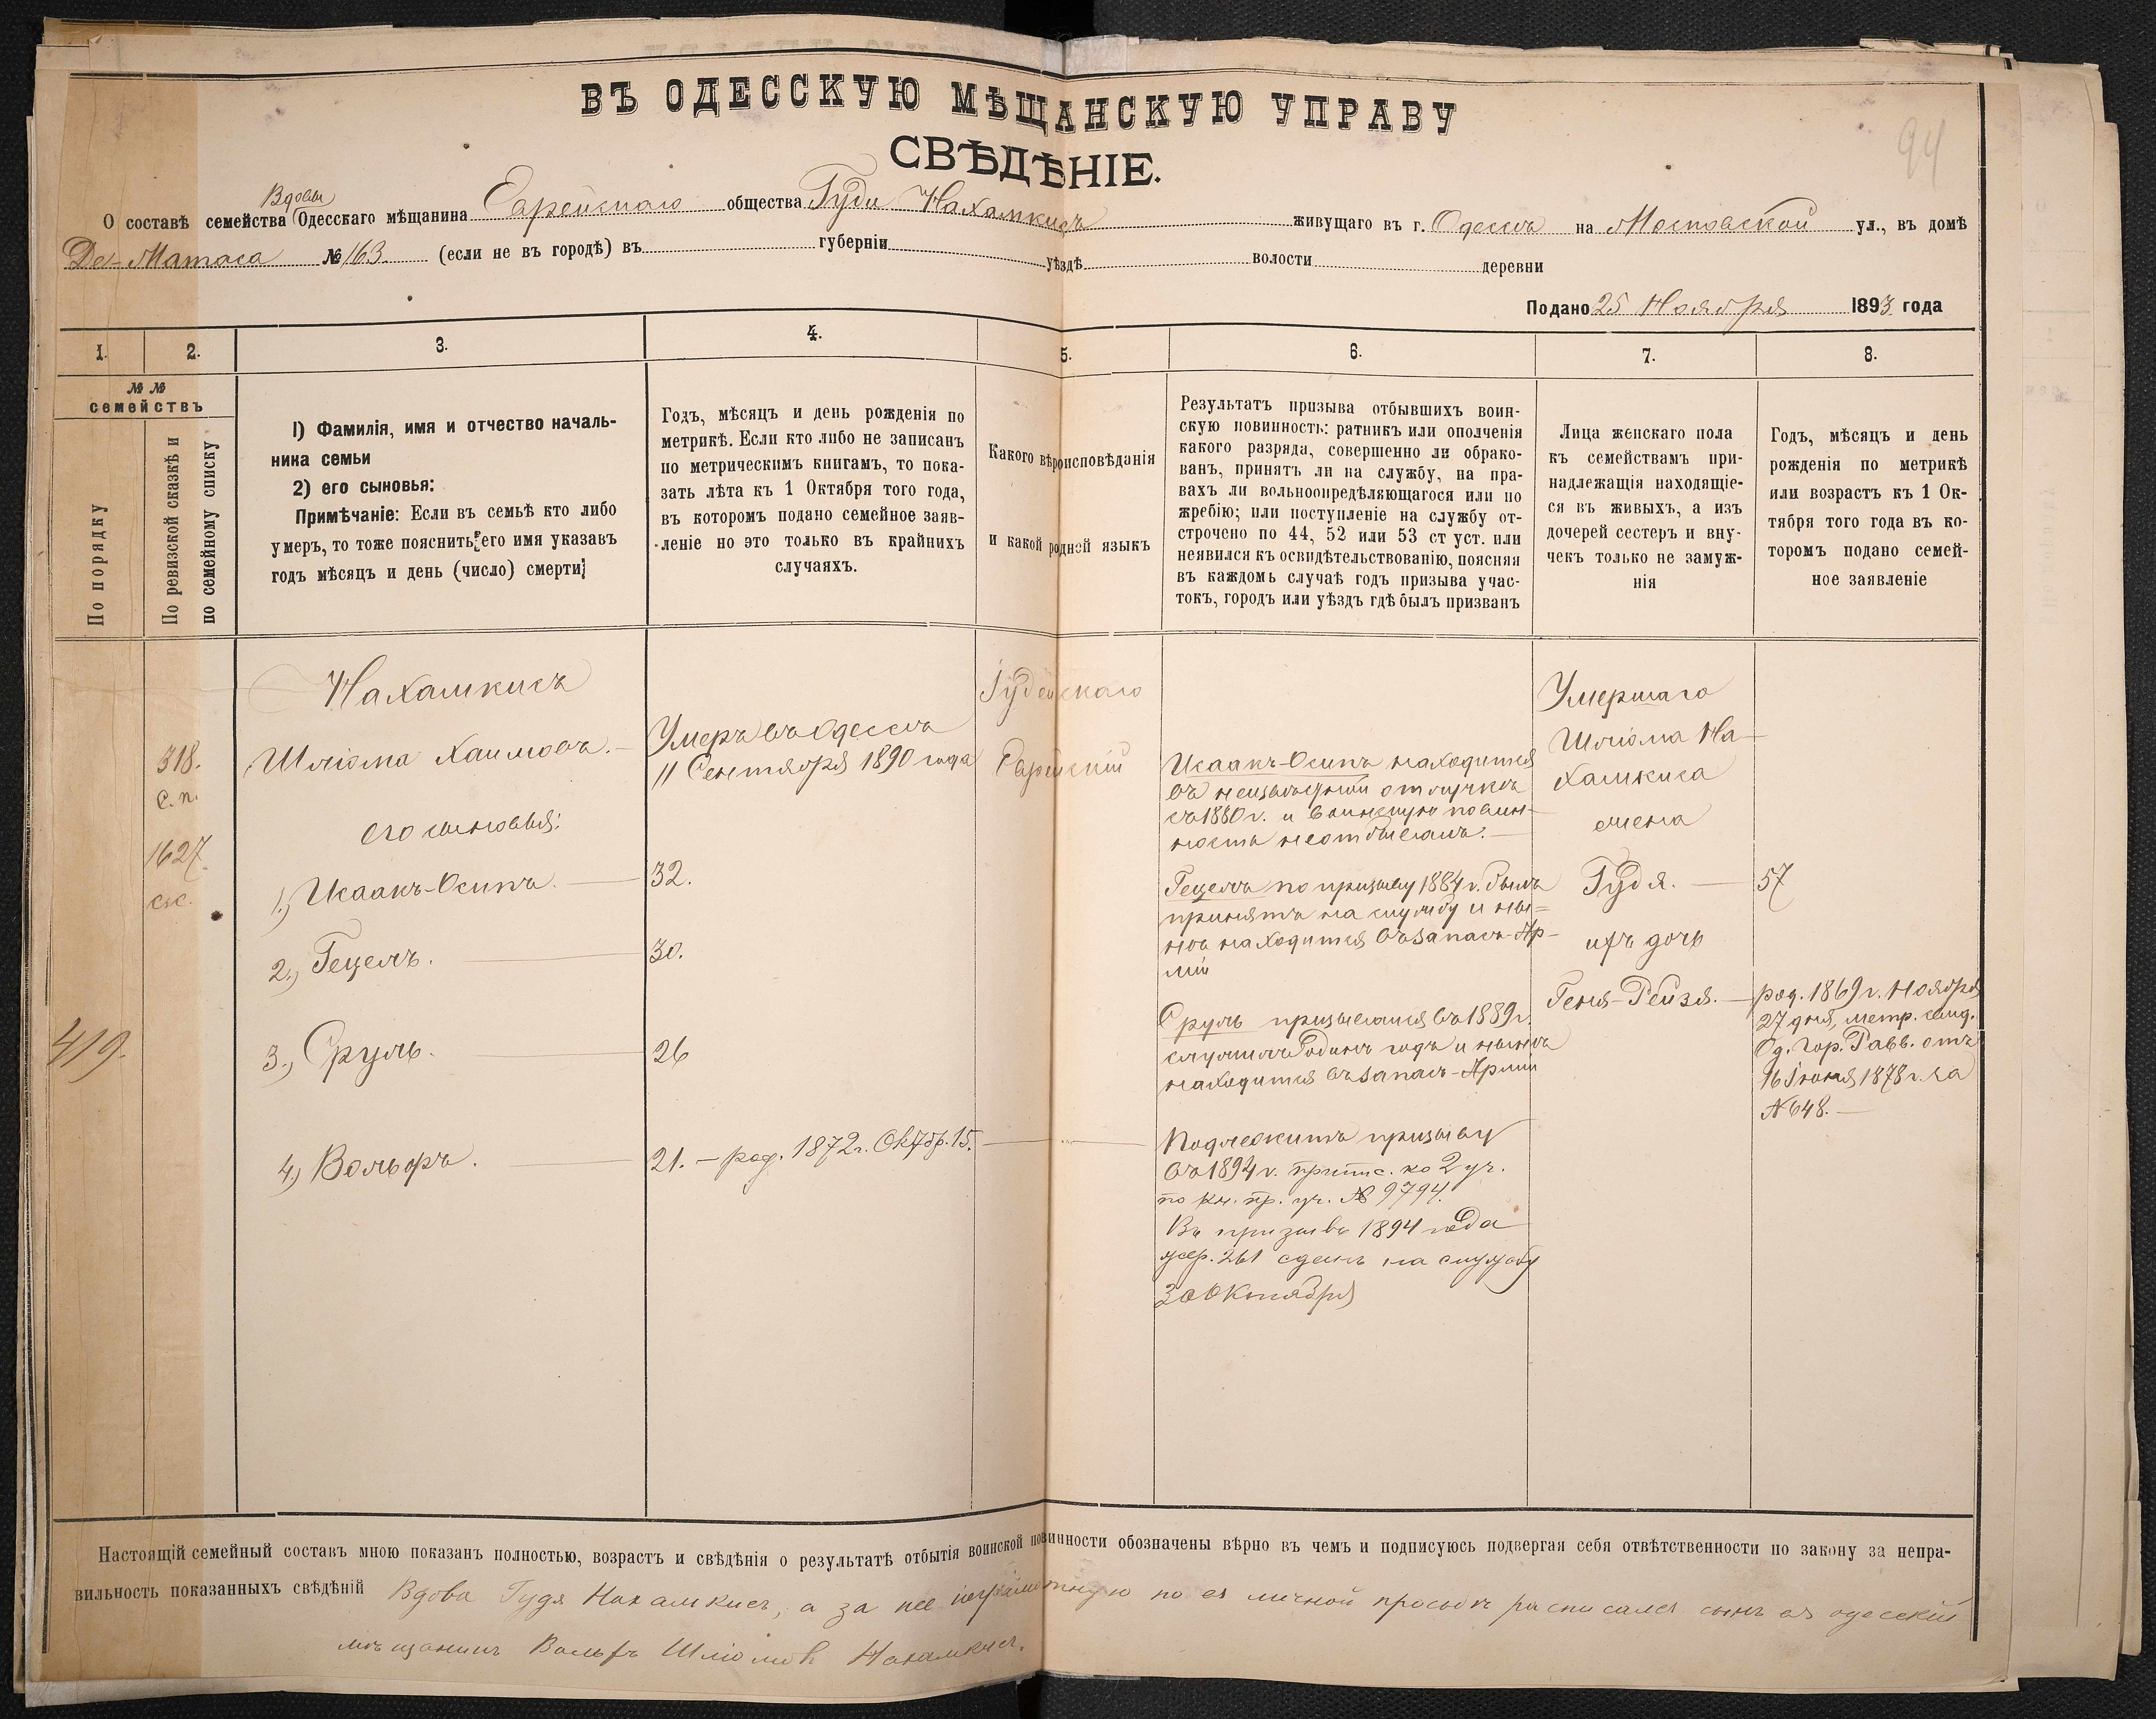 ВЪ ОДЕССКУЮ МѢЩАНСКУЮ УПРАВУ
94
СВѢДѢНІЕ.
Вдовы
О составѣ семейства Одесскаго мѣщанина Еврейскаго общества Гуди Нахамкисъ живущаго въ г. Одессѣ на Московской ул., въ домѣ
Де-Матаса № 163. (если не въ городѣ) въ губерніи уѣздѣ волости деревни
Подано 25 Ноября 1893 года
1. 2. 3. 4. 5. 6. 7. 8.
№ №
семействъ
По порядку
По ревизской сказкѣ и
по семейному списку
1) Фамилія, имя и отчество началь-
ника семьи
2) его сыновья:
Примѣчаніе: Если въ семьѣ кто либо
умеръ, то тоже пояснить его имя указавъ
годъ мѣсяцъ и день (число) смерти;
Годъ, мѣсяцъ и день рожденія по
метрикѣ. Если кто либо не записанъ
по метрическимъ книгамъ, то пока-
зать лѣта къ 1 Октября того года,
въ которомъ подано семейное заяв-
леніе но это только въ крайнихъ
случаяхъ.
Какого вѣроисповѣданія
и какой родной языкъ
Результатъ призыва отбывшихъ воин-
скую повинность: ратникъ или ополченія
какого разряда, совершенно ли обрако-
ванъ, принятъ ли на службу, на пра-
вахъ ли вольноопредѣляющагося или по
жребію; или поступленіе на службу от-
строчено по 44, 52 или 53 ст уст. или
неявился къ освидѣтельствованію, поясняя
въ каждомъ случаѣ годъ призыва учас-
токъ, городъ или уѣздъ гдѣ былъ призванъ
Лица женскаго пола
къ семействамъ при-
надлежащія находящіе-
ся въ живыхъ, а изъ
дочерей сестеръ и вну-
чекъ только не замуж-
нія
Годъ, мѣсяцъ и день
рожденія по метрикѣ
или возрастъ къ 1 Ок-
тября того года въ ко-
торомъ подано семей-
ное заявленіе
419.
318.
с.п.
1627
Нахамкисъ
Шліома Хаимовъ.
его сыновья:
1.) Исаакъ-Осипъ.
2.) Гецель.
3.) Сруль.
4.) Вольфъ.
Умеръ въ Одессѣ
11 Сентября 1890 года
32.
30.
26
21. – род. 1872 г. Октбр. 15.
Іудейскаго
Еврейскій
Исаакъ-Осипъ находится
въ неизвѣстной отлучкѣ
съ 1880 г. и воинскую повин-
ность неотбывалъ.
Гецель по призыву 1884 г. былъ
принятъ на службу и ны-
нѣ находится въ запасѣ Ар-
міи
Сруль призывался въ 1889 г.
служилъ одинъ годъ и нынѣ
находится въ запасѣ Арміи
Подлежитъ призыву
въ 1894 г. припис. ко 2 уч.
по кн. пр. уч. № 9794.
Въ призывъ 1894 года
жер. 261 сданъ на службу
30 Октября
Умершаго
Шліома На-
хамкиса
жена
Гудя.
ихъ дочь
Геня-Рейзя.
57
род. 1869 г. Ноября
27 дня, метр. свид.
Од. Гор. Равв. отъ
16 Іюня 1878 г. за
№ 648.
Настоящій семейный составъ мною показанъ полностью, возрастъ и свѣдѣнія о результатѣ отбытія воинской повинности обозначены вѣрно въ чемъ и подписуюсь подвергая себя отвѣтственности по закону за непра-
вильность показанныхъ свѣдѣній Вдова Гудя Нахамкисъ, а за нее неграмотную по ея личной просьбѣ расписался сынъ ея одесскій
мѣщанинъ Вольфъ Шліомов Нахамкисъ.